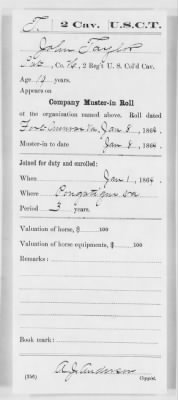 T. | 2 Cav. | U.S.C.T.
John Taylor
Pvt, Co. H, 2 Reg't U. S. Col'd Cav.
Age 18 years.
Appears on
Company Muster-in Roll
of the organization named above. Roll dated
Fort Monroe Va, Jan 8, 1864.
Muster-in to date Jan 8, 1864.
Joined for duty and enrolled:
When Jan 1, 1864.
Where Va
Period 3 years.
Valuation of horse, $ 100
Valuation of horse equipments, $ 100
Remarks:
Book mark:
A. J. Anderson
(356) Copyist.